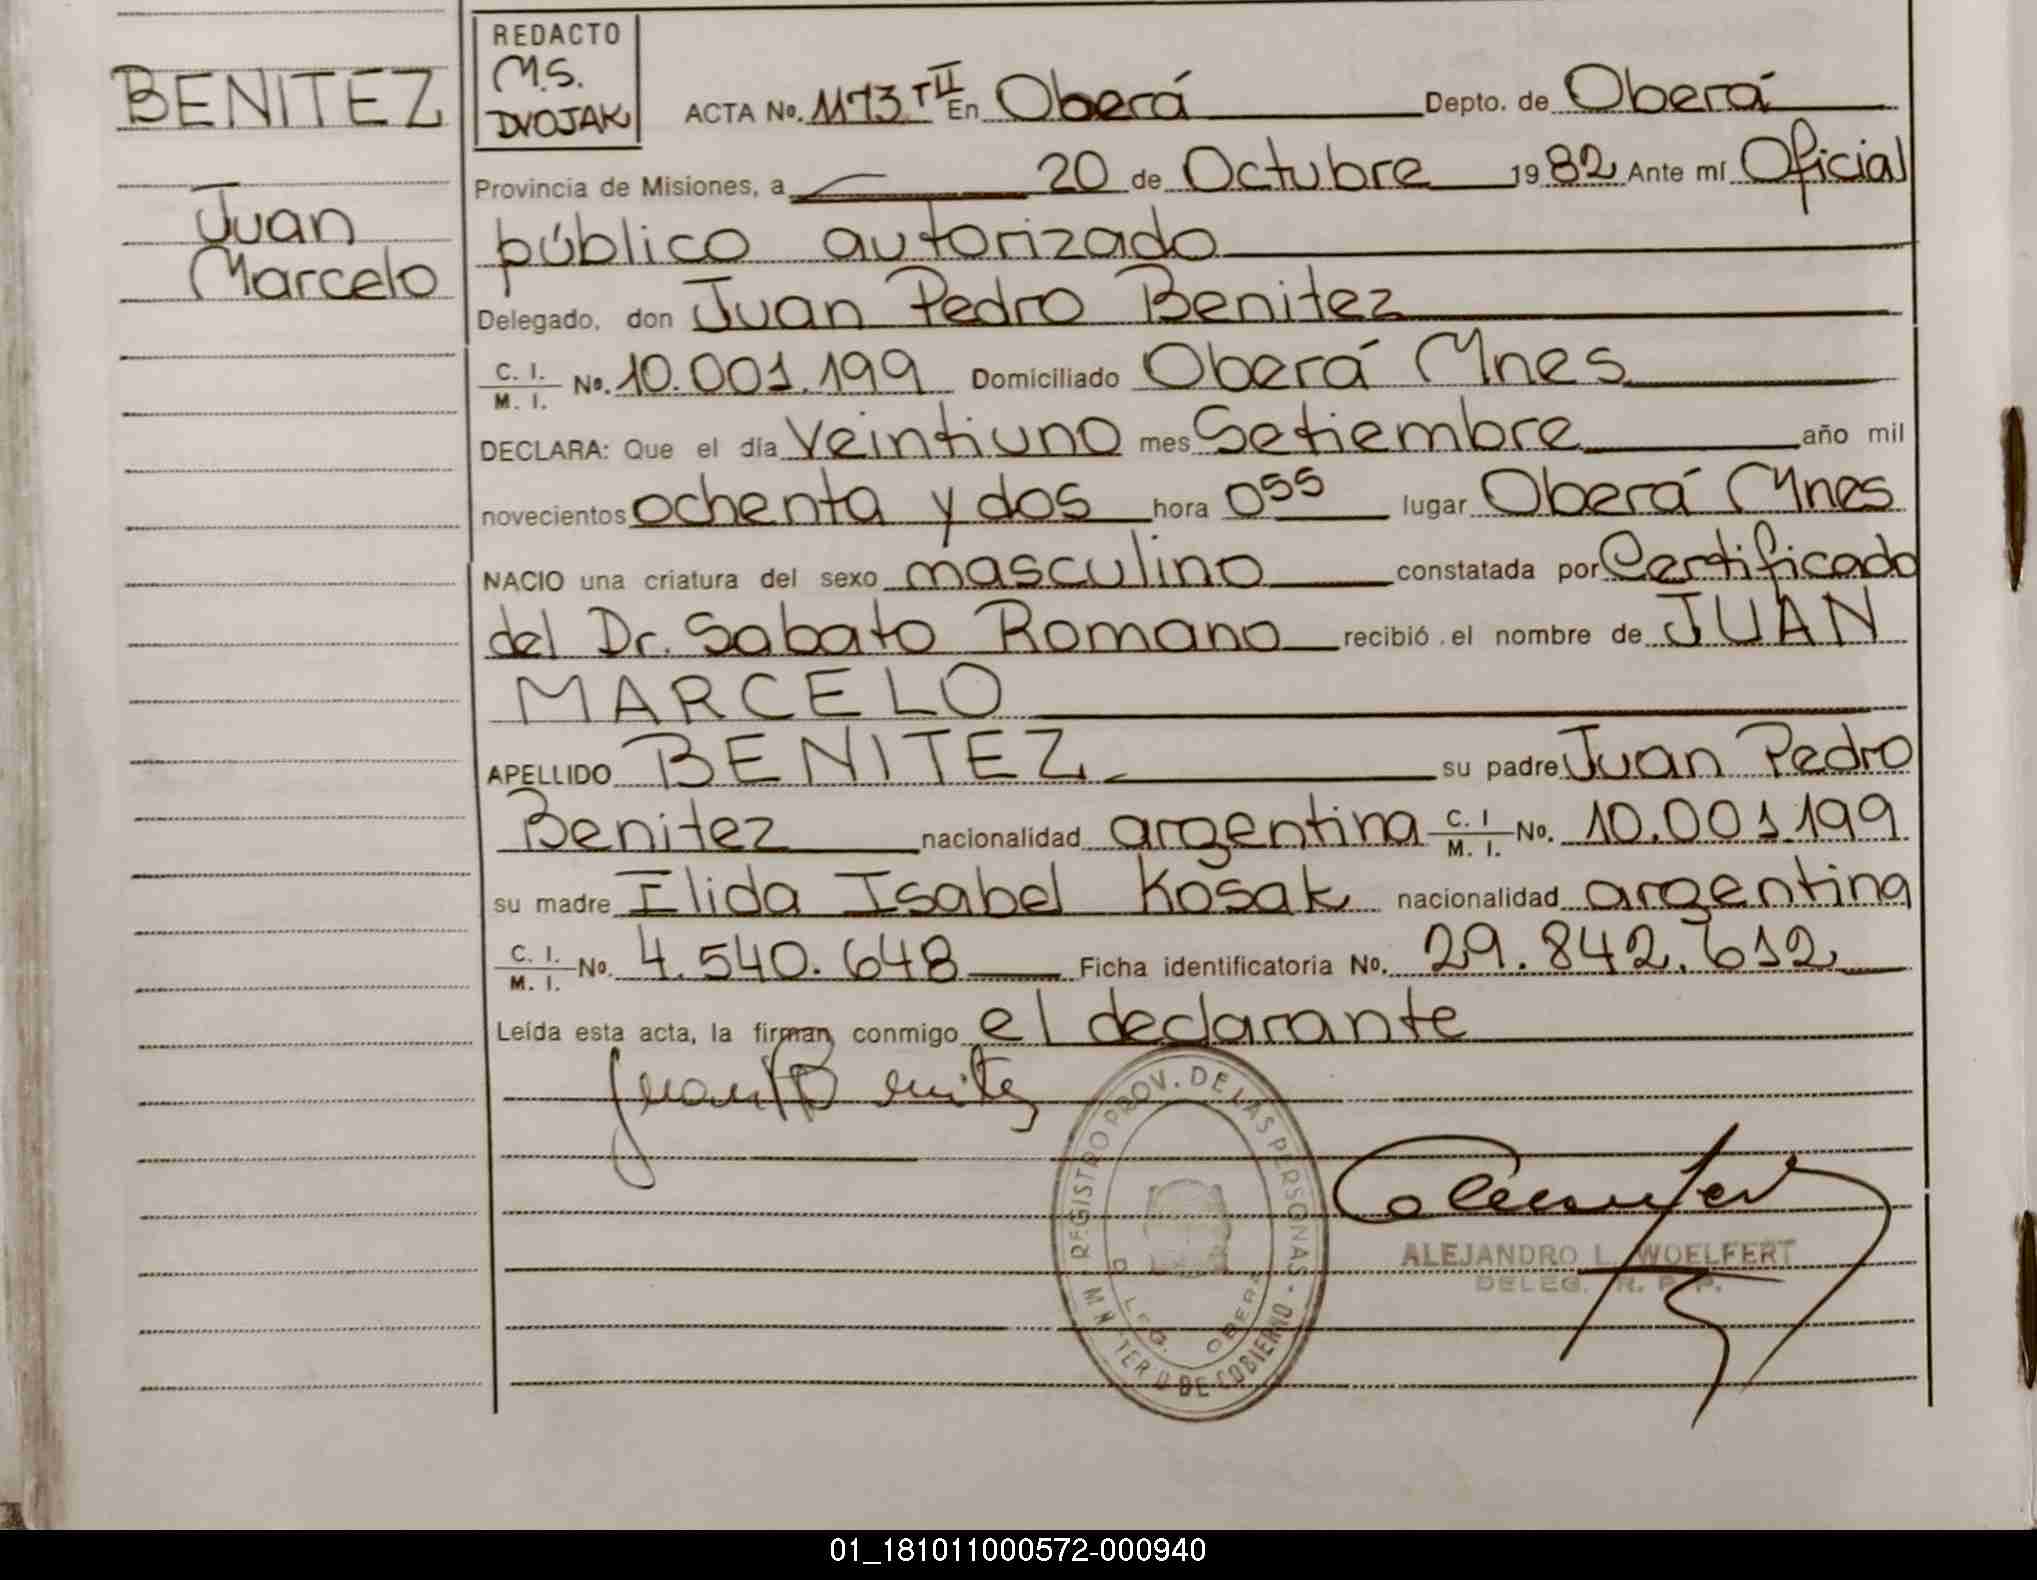 BENITEZ
Juan
Marcelo
REDACTO
M.S.
DVOJAK
ACTA No. 1173 T II En Oberá Depto. de Oberá
Provincia de Misiones, a 20 de Octubre 1982 Ante mí Oficial
público autorizado
Delegado, don Juan Pedro Benitez
C. I. / M. I. No. 10.001.199 Domiciliado Oberá Mnes
DECLARA: Que el día Veintiuno mes Setiembre año mil
novecientos ochenta y dos hora 0 55 lugar Oberá Mnes
NACIO una criatura del sexo masculino constatada por Certificado
del Dr. Sabato Romano recibió el nombre de JUAN
MARCELO
APELLIDO BENITEZ su padre Juan Pedro
Benitez nacionalidad argentina C. I / M. I. No. 10.001.199
su madre Ilida Isabel Kosak nacionalidad argentina
C. I. / M. I. No. 4.540.648 Ficha identificatoria No. 29.842.612
Leída esta acta, la firman conmigo el declarante
Juan P Benitez
REGISTRO PROV. DE LAS PERSONAS
OBERA
DE GOBIERNO
ALEJANDRO L. WOELFERT
DELEG. R. P. P.
01_181011000572-000940